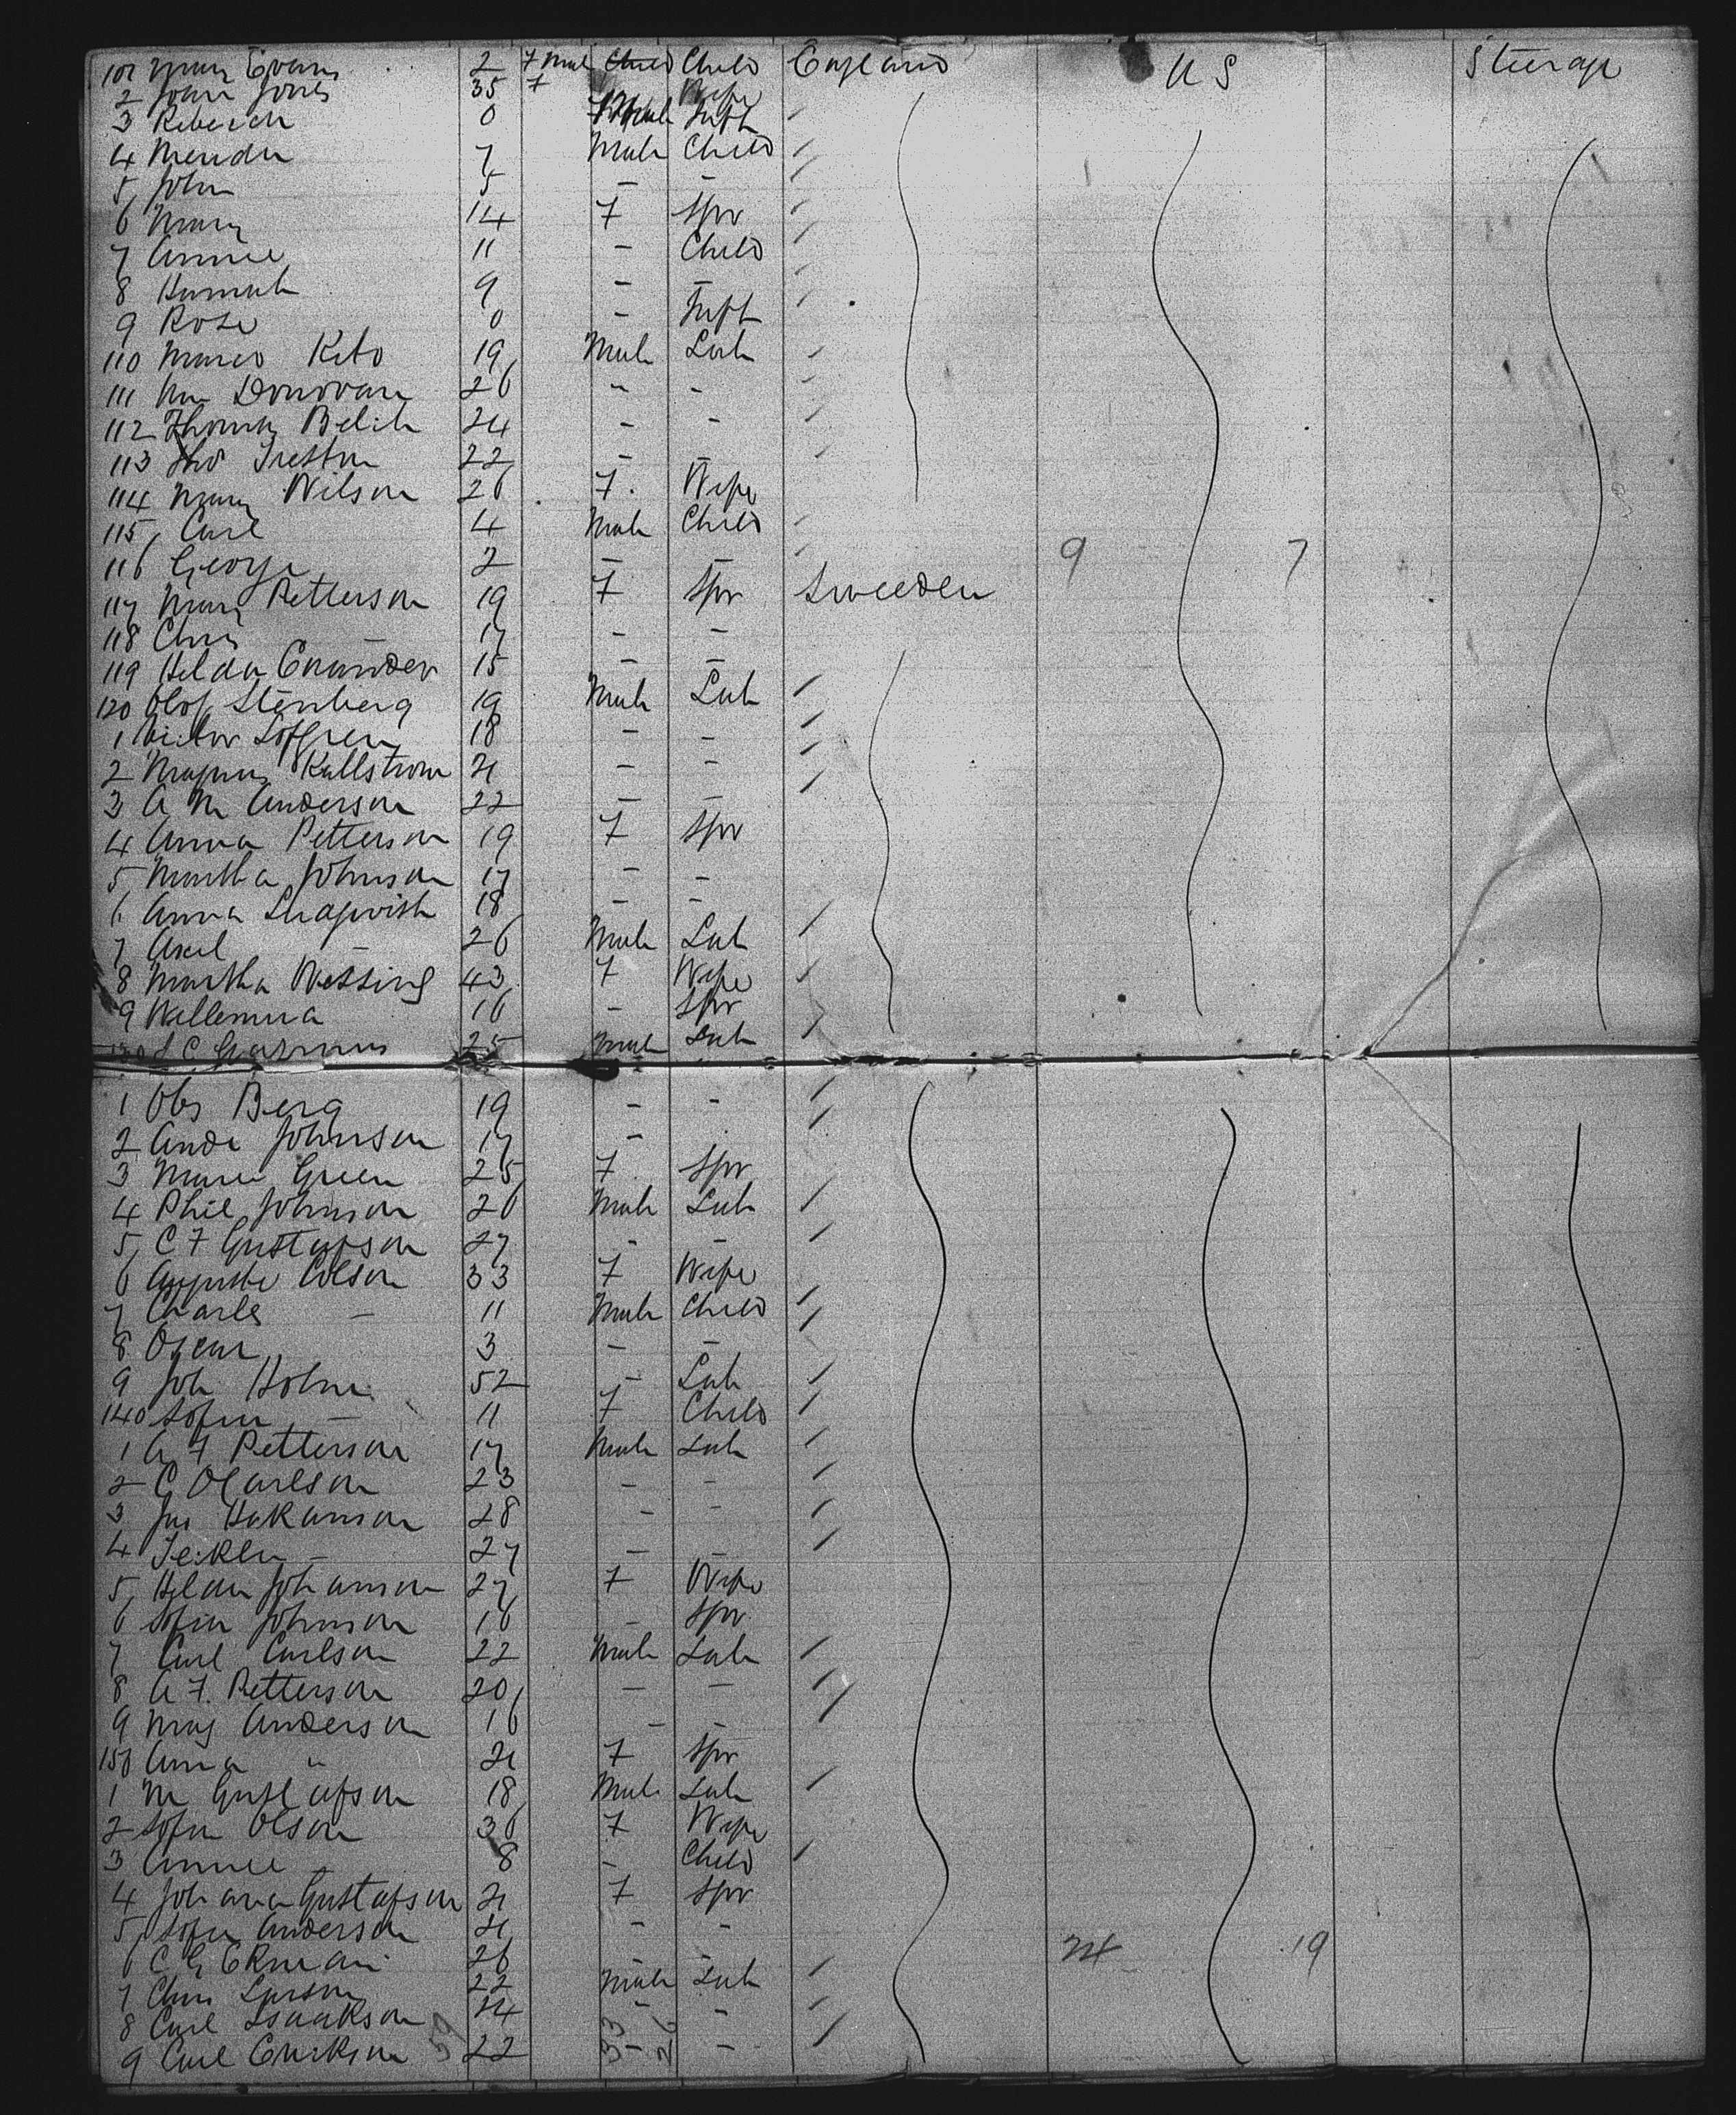 101 Mary Evans 2 7 Mul Child Child England U S Steerage
2 Jones 35 7 Wife
3 0 Male Inft
4 7 Male Child
5 John 5 - -
6 Mary 14 7 Spr
7 Annie 11 - Child
8 Hannah 9 - -
9 Rose 0 - Inft
110 Marco 19 Male Lab
111 Wm Donovan 26 - -
112 Thomas 24 - -
113 Tho 22 - -
114 Mary Wilson 26 7 Wife
115 Carl 4 Male Child
116 George 2 - - 9 7
117 Mary Petterson 19 7 Spr Sweeden
118 Chris - 17 - -
119 Hilda 15 - -
120 Olof Stenberg 19 Male Lab
1 Victor Lofgren 18 - -
2 Magnus Kallstrom 21 - -
3 A M Anderson 22 - -
4 Anna Petterson 19 7 Spr
5 Martha Johnson 17 - -
6 Anna 18 - -
7 Axel - 26 Male Lab
8 Martha Wessing 43 7 Wife
9 Willemina 16 - Spr
130 25 Male Lab
1 Berg 19 - -
2 Johnson 17 -
3 Green 25 7 Spr
4 Phil Johnson 26 Male Lab
5 C F Gustafson 27 - -
6 33 7 Wife
7 Charles - 11 Male Child
8 Oscar 3 - -
9 Joh 52 - Lab
140 Sofia - 11 7 Child
1 A F Petterson 17 Male Lab
2 C O Carlson 23 - -
3 Hakanson 28 - -
4 - 27 - -
5 Hilda Johanson 27 7 Wife
6 Sofia Johnson 16 - Spr
7 Carl Carlson 22 Male Lab
8 A F. Petterson 20 - -
9 Mag Anderson 16 - -
150 Anna " 21 7 Spr
1 M Gustafson 18 Male Lab
2 Sofia Olson 36 7 Wife
3 Annie - 8 - Child
4 Johana Gustafson 21 7 Spr
5 Sofia Anderson 21 - -
6 C G Ekman 26 - - 24 19
7 Chris Larson 22 Male Lab
8 Carl Isaakson 24 - -
9 Carl Erikson 39 22 33 - 26 -